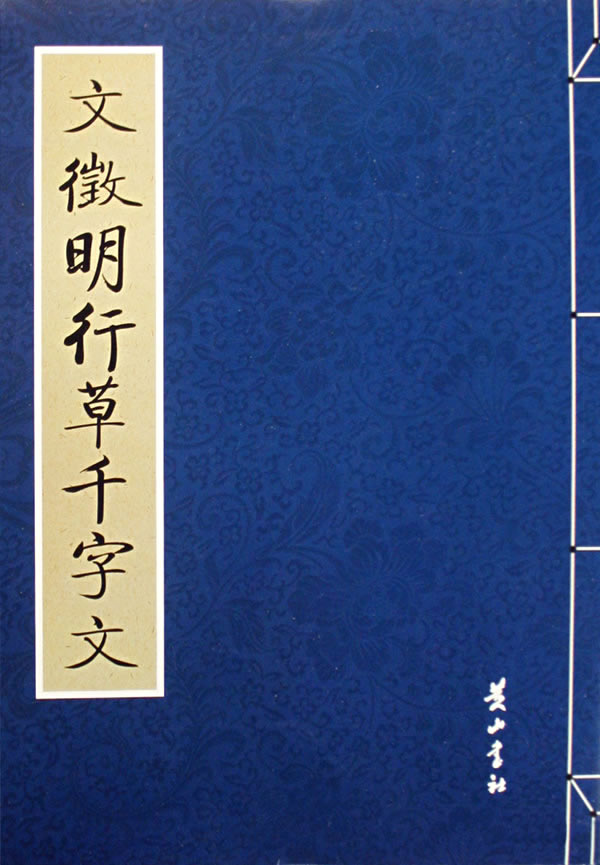 文徵明行草千字文
黄山书社